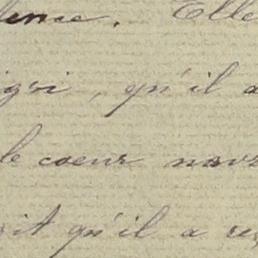 lence. Elle
igri, qu'il a
le coeur navr
it qu'il a re